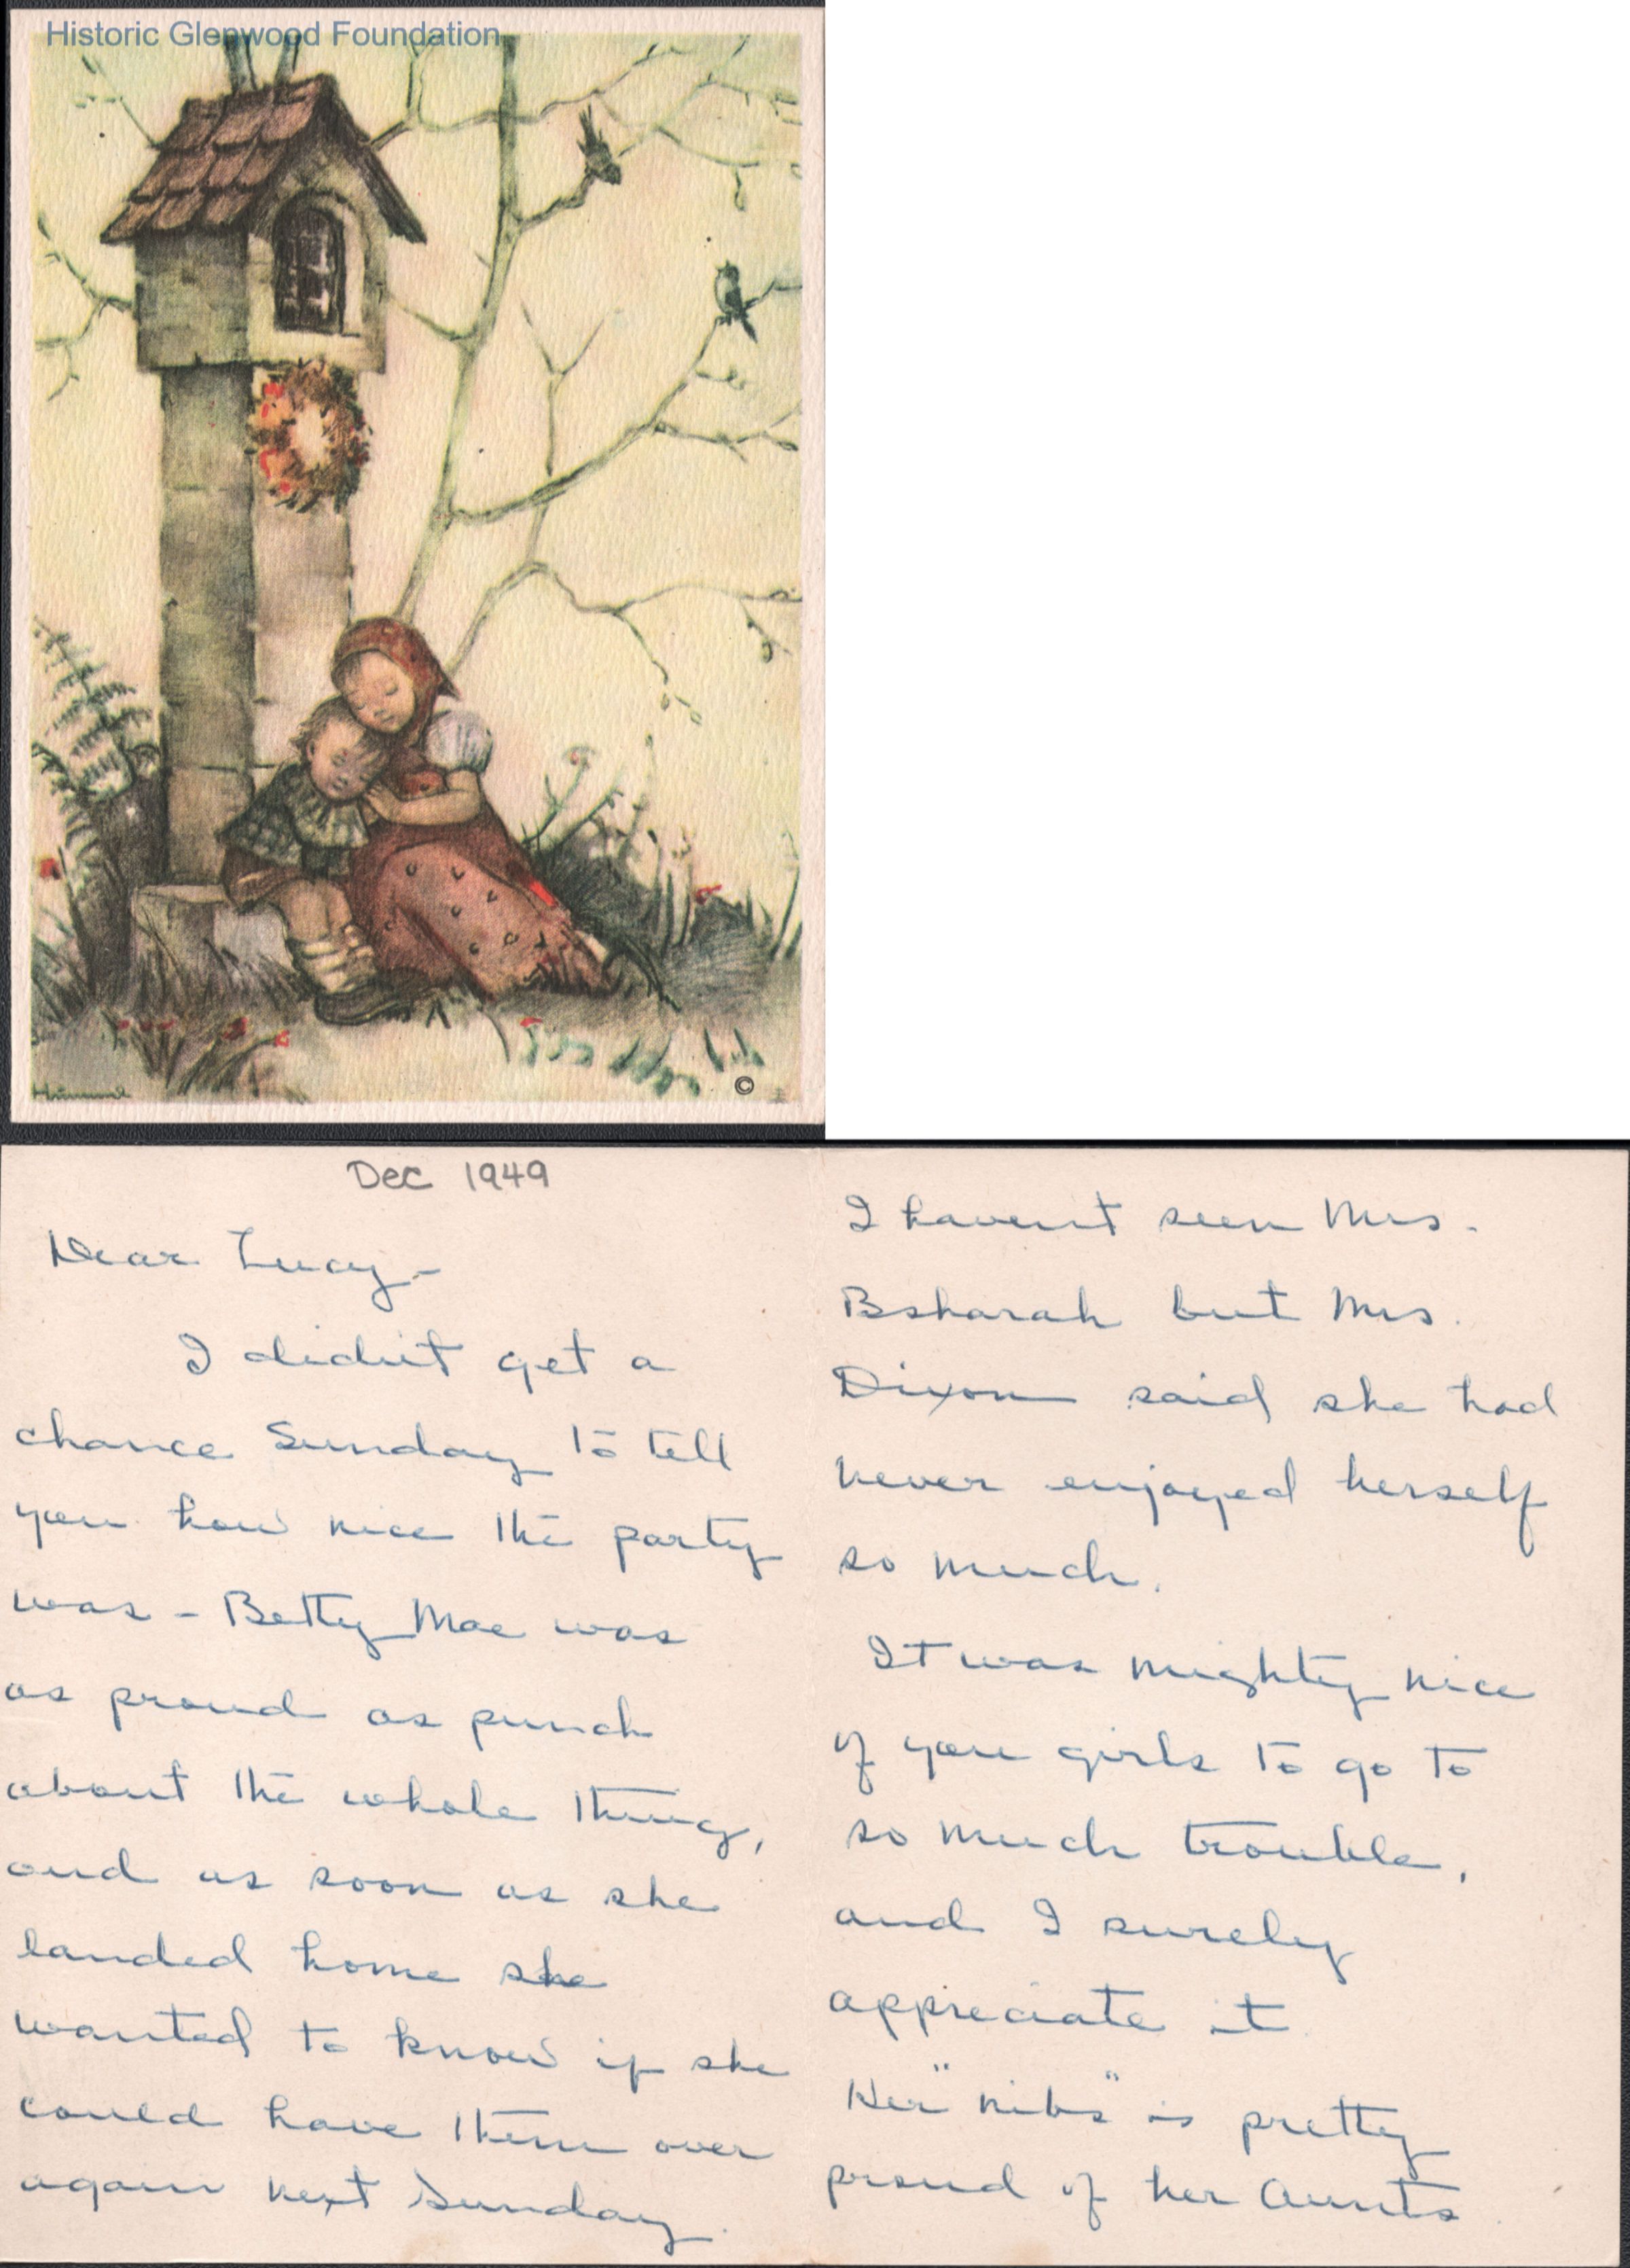 Historic Glenwood Foundation
Hummel
©
Dec 1949
Dear Lucy -
I didn't get a
chance Sunday to tell
you how nice the party
was - Betty Mae was
as proud as punch
about the whole thing,
and as soon as she
landed home she
wanted to know if she
could have them over
again next Sunday.
I haven't seen Mrs.
Bsharah but Mrs.
Dixon said she had
never enjoyed herself
so much.
It was mighty nice
of you girls to go to
so much trouble,
and I surely
appreciate it.
Her "nibs" is pretty
proud of her Aunts